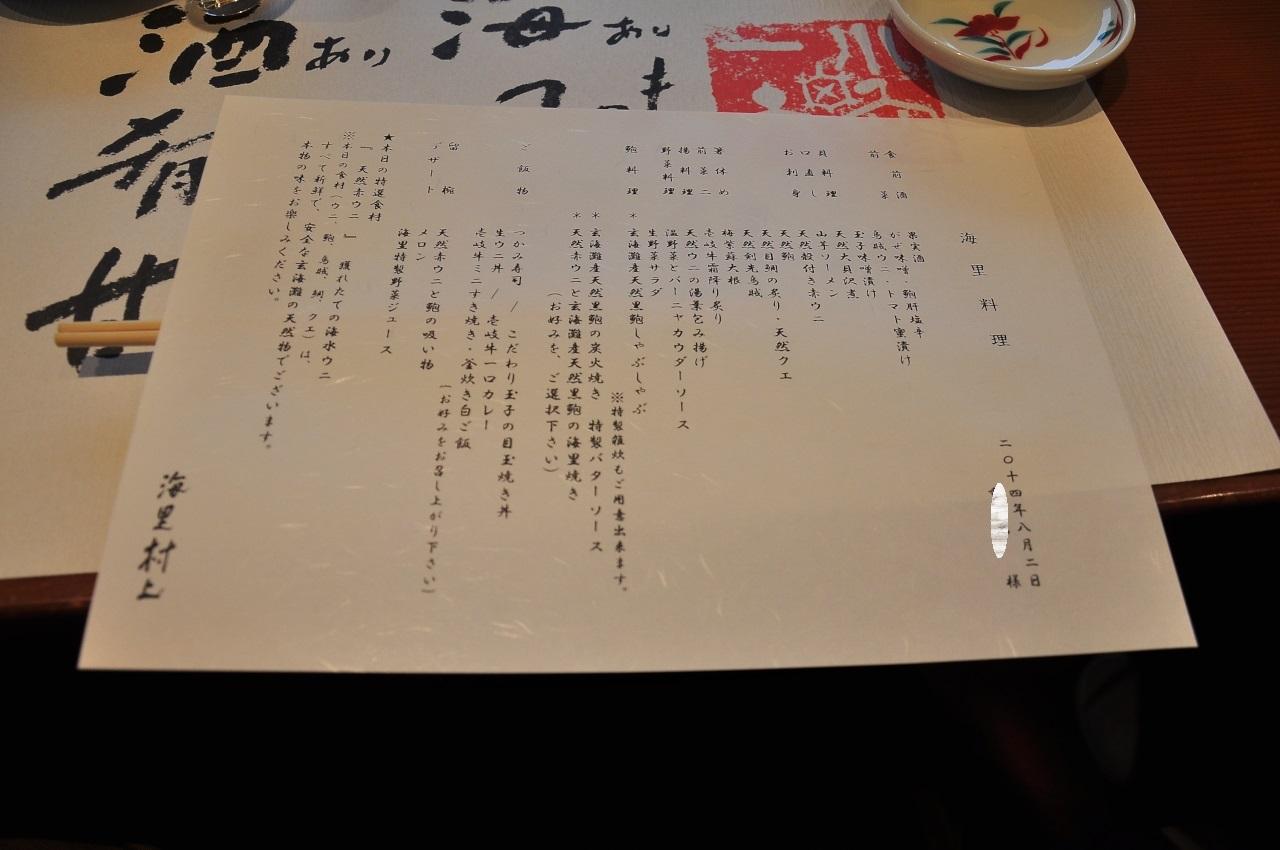 海里料理
二〇十四年八月二日
様
食前酒 果実酒
前菜 がぜ味噌・鮑肝塩辛
烏賊ウニ・トマト蜜漬け
玉子味噌漬け
貝料理 天然大貝沢煮
口直し 山芋ソーメン
お刺身 天然殻付き赤ウニ
天然鮑
天然目鯛の炙り・天然クエ
天然剣光烏賊
箸休め 梅紫蘇大根
前菜二 壱岐牛霜降り炙り
揚料理 天然ウニの湯葉包み揚げ
野菜料理 温野菜とバーニャカウダーソース
生野菜サラダ
鮑料理 *玄海灘産天然黒鮑しゃぶしゃぶ
※特製雑炊もご用意出来ます。
*玄海灘産天然黒鮑の炭火焼き 特製バターソース
*天然赤ウニと玄海灘産天然黒鮑の海里焼き
(お好みを、ご選択下さい)
ご飯物 つかみ寿司 / こだわり玉子の目玉焼き丼
生ウニ丼 / 壱岐牛一口カレー
壱岐牛ミニすき焼き・釜炊き白ご飯
(お好みをお召し上がり下さい)
留椀 天然赤ウニと鮑の吸い物
デザート メロン
海里特製野菜ジュース
★本日の特選食材
『天然赤ウニ』 獲れたての海水ウニ
※本日の食材(ウニ、鮑、烏賊、鯛、クエ)は、
すべて新鮮で、安全な玄海灘の天然物でございます。
本物の味をお楽しみください。
海里村上
海あり
酒あり
肴